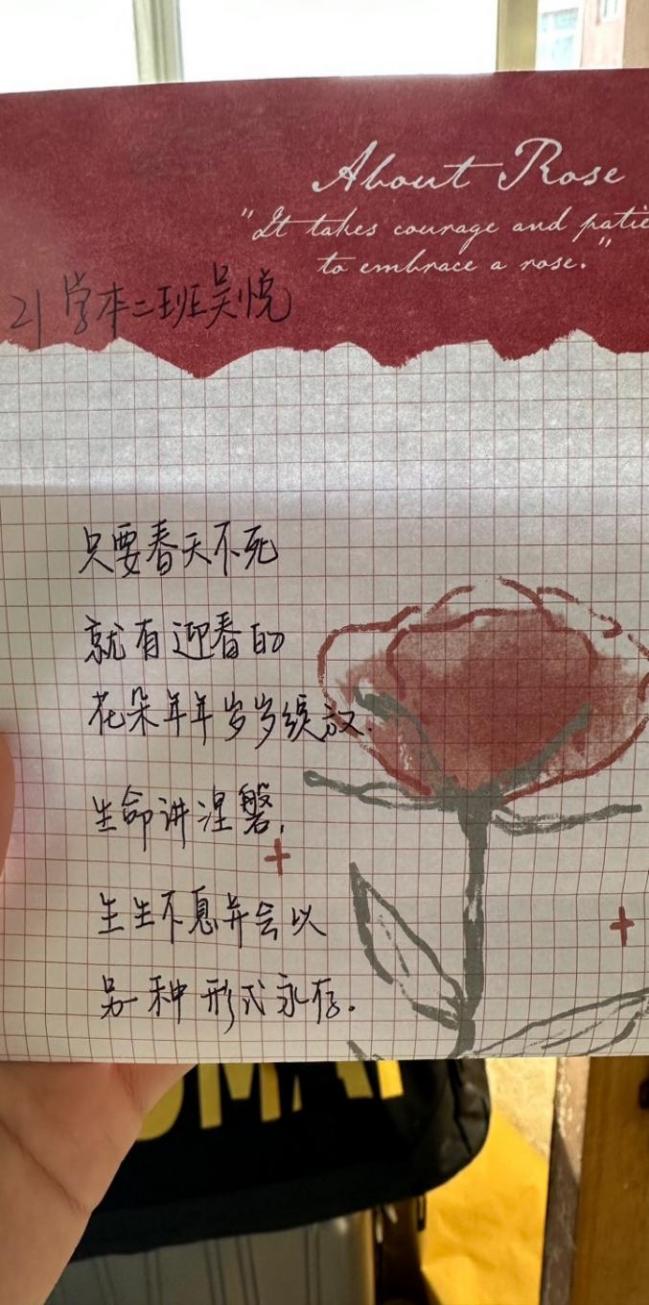 About Rose
"It takes courage and patie
to embrace a rose."
21学本二班吴悦
只要春天不死
就有迎春的
花朵年年岁岁绽放.
生命讲涅磐,
生生不息并会以
另一种形式永存.